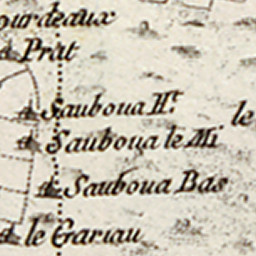 ourdeaux
Prat
Sauboua H.t
le
Sauboua le Mi
Sauboua Bas
le Gariau